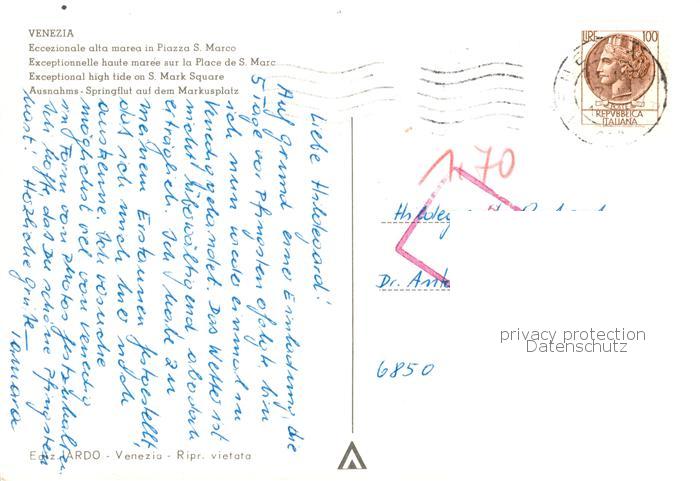 VENEZIA
Eccezionale alta marea in Piazza S. Marco
Exceptionnelle haute marée sur la Place de S. Marc
Exceptional high tide on S. Mark Square
Ausnahms - Springflut auf dem Markusplatz
Liebe Hildegard!
Auf Grund einer Einladung, die
5 Tage vor Pfingsten erfolgt, bin
ich nun wieder einmal in
Venedig gelandet. Das Wetter ist
nicht überwältigend aber doch
erträglich. Ich habe zu
meinem Erstaunen festgestellt,
daß ich mich hier noch
auskenne. Ich versuche
möglichst viel von Venedig
in Form von Photos festzuhalten.
Ich hoffe daß Du schöne Pfingsten
hast! Herzliche Grüße
LIRE 100
REPVBBLICA
ITALIANA
1,70
Dr.
6850
privacy protection
Datenschutz
Ediz. ARDO - Venezia - Ripr. vietata